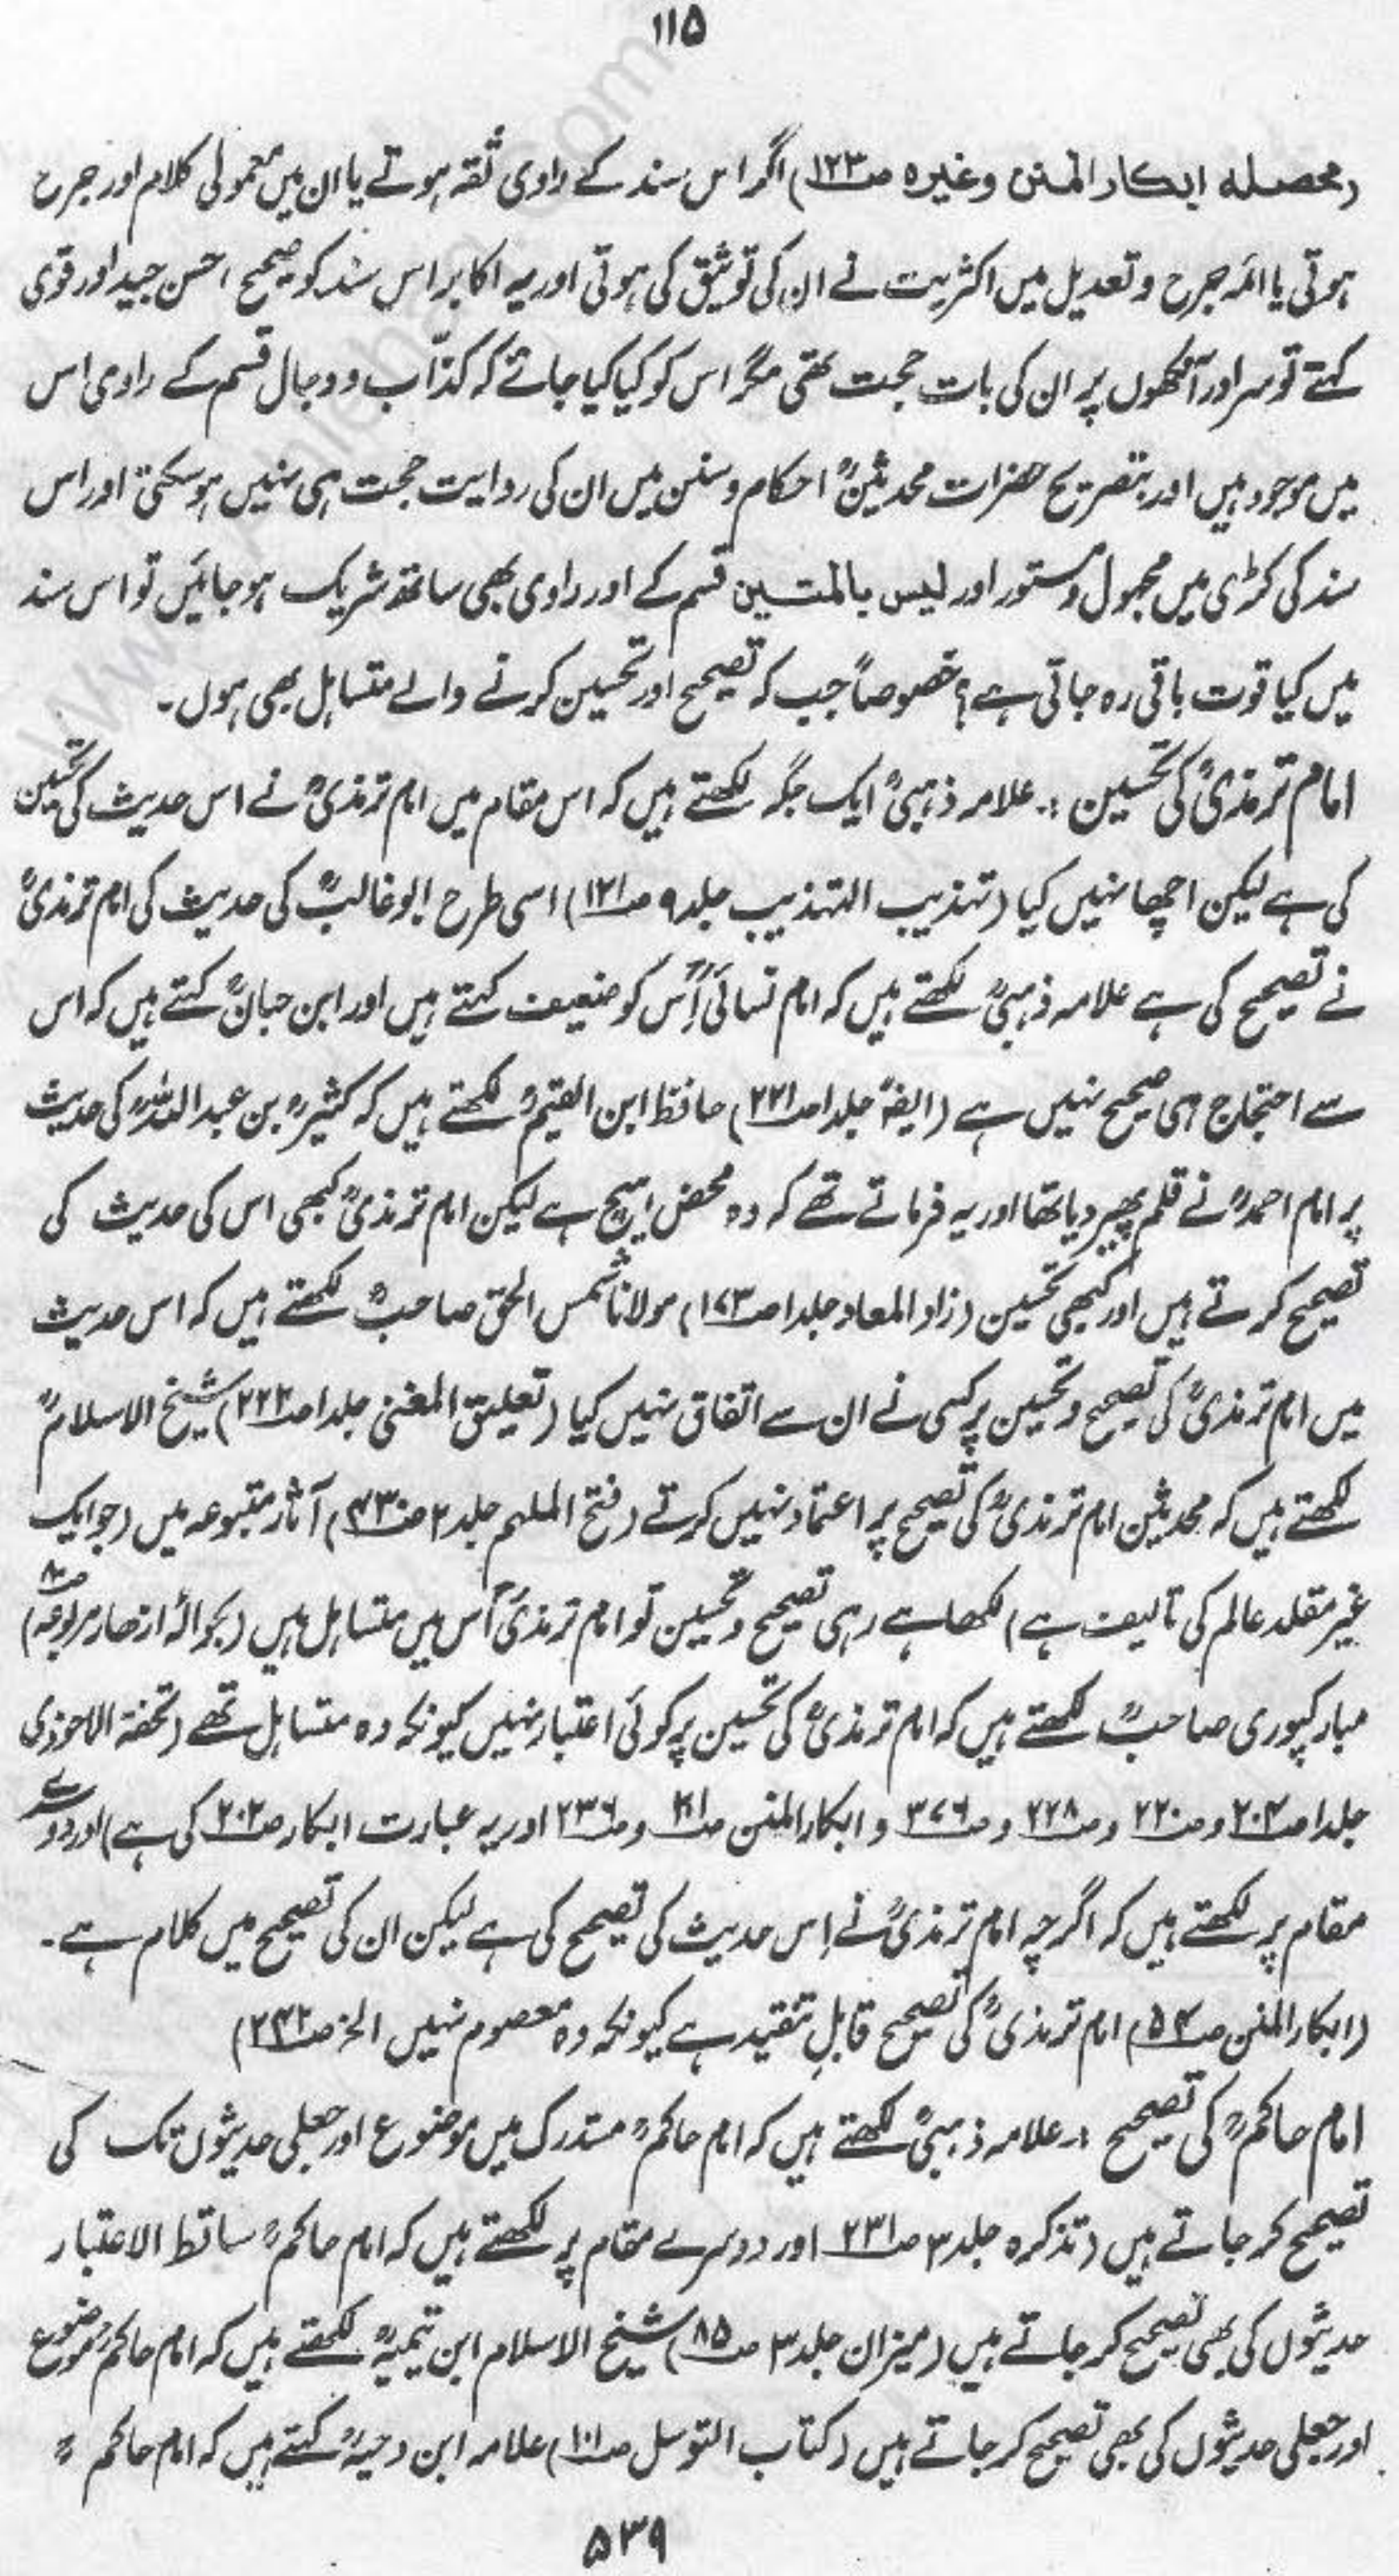 ۱۱۵
(محصلہ ابکار المنن وغیرہ صـ۱۲۳) اگر اس سند کے راوی ثقہ ہوتے یا ان میں معمولی کلام اور جرح
ہوتی یا ائمہ جرح و تعدیل میں اکثریت نے ان کی توثیق کی ہوتی اور یہ اکابر اس سند کو صحیح احسن جید اور قوی
کہتے تو سر اور آنکھوں پر ان کی بات حجت تھی مگر اس کو کیا کیا جائے کہ کذّاب و دجال قسم کے راوی اس
میں موجود ہیں اور بتصریح حضرات محدثینؒ احکام و سنن میں ان کی روایت حجت ہی نہیں ہو سکتی اور اس
سند کی کڑی میں مجہول و مستور اور لیس بالمتین قسم کے اور راوی بھی ساتھ شریک ہو جائیں تو اس سند
میں کیا قوت باقی رہ جاتی ہے؟ خصوصاً جب کہ تصحیح اور تحسین کرنے والے متساہل بھی ہوں۔
امام ترمذیؒ کی تحسین :۔ علامہ ذہبیؒ ایک جگہ لکھتے ہیں کہ اس مقام میں امام ترمذیؒ نے اس حدیث کی تحسین
کی ہے لیکن اچھا نہیں کیا (تہذیب التہذیب جلد ۹ صـ۱۲۱) اسی طرح ابو غالبؒ کی حدیث کی امام ترمذیؒ
نے تصحیح کی ہے علامہ ذہبیؒ لکھتے ہیں کہ امام نسائیؒ اُس کو ضعیف کہتے ہیں اور ابن حبانؒ کہتے ہیں کہ اس
سے احتجاج ہی صحیح نہیں ہے (ایضاً جلد ۱ صـ۲۲۱) حافظ ابن القیمؒ لکھتے ہیں کہ کثیرؒ بن عبد اللہؒ کی حدیث
پر امام احمدؒ نے قلم پھیر دیا تھا اور یہ فرماتے تھے کہ وہ محض ہیچ ہے لیکن امام ترمذیؒ کبھی اس کی حدیث کی
تصحیح کرتے ہیں اور کبھی تحسین (زاد المعاد جلد ۱ صـ۱۷۳) مولانا شمس الحق صاحبؒ لکھتے ہیں کہ اس حدیث
میں امام ترمذیؒ کی تصحیح و تحسین پر کسی نے ان سے اتفاق نہیں کیا (تعلیق المغنی جلد ۱ صـ۲۲۲) شیخ الاسلامؒ
لکھتے ہیں کہ محدثین امام ترمذیؒ کی تصحیح پر اعتماد نہیں کرتے (فتح الملہم جلد ۲ صـ۴۳۰) آثار متبوعہ میں (جو ایک
غیر مقلد عالم کی تالیف ہے) لکھا ہے رہی تصحیح و تحسین تو امام ترمذیؒ اُس میں متساہل ہیں (بحوالہ ازھار مربوعہ صـ۸۰)
مبارکپوری صاحبؒ لکھتے ہیں کہ امام ترمذیؒ کی تحسین پر کوئی اعتبار نہیں کیونکہ وہ متساہل تھے (تحفۃ الاحوذی
جلد ۱ صـ۲۰۲ و صـ۲۲۰ و صـ۲۲۸ و صـ۳۷۶ و ابکار المنن صـ۲۱۱ و صـ۲۳۶ اور یہ عبارت ابکار صـ۲۰۲ کی ہے) اور دوسرے
مقام پر لکھتے ہیں کہ اگرچہ امام ترمذیؒ نے اِس حدیث کی تصحیح کی ہے لیکن ان کی تصحیح میں کلام ہے۔
(ابکار المنن صـ۵۴) امام ترمذیؒ کی تصحیح قابلِ تنقید ہے کیونکہ وہ معصوم نہیں الخ صـ۲۴۲)
امام حاکمؒ کی تصحیح :۔ علامہ ذہبیؒ لکھتے ہیں کہ امام حاکمؒ مستدرک میں موضوع اور جعلی حدیثوں تک کی
تصحیح کر جاتے ہیں (تذکرہ جلد ۳ صـ۲۳۱ اور دوسرے مقام پر لکھتے ہیں کہ امام حاکمؒ ساقط الاعتبار
حدیثوں کی بھی تصحیح کر جاتے ہیں (میزان جلد ۳ صـ۸۵) شیخ الاسلام ابن تیمیہؒ لکھتے ہیں کہ امام حاکمؒ موضوع
اور جعلی حدیثوں کی بھی تصحیح کر جاتے ہیں (کتاب التوسل صـ۱۰۱) علامہ ابن دحیہؒ کہتے ہیں کہ امام حاکمؒ
۵۳۹